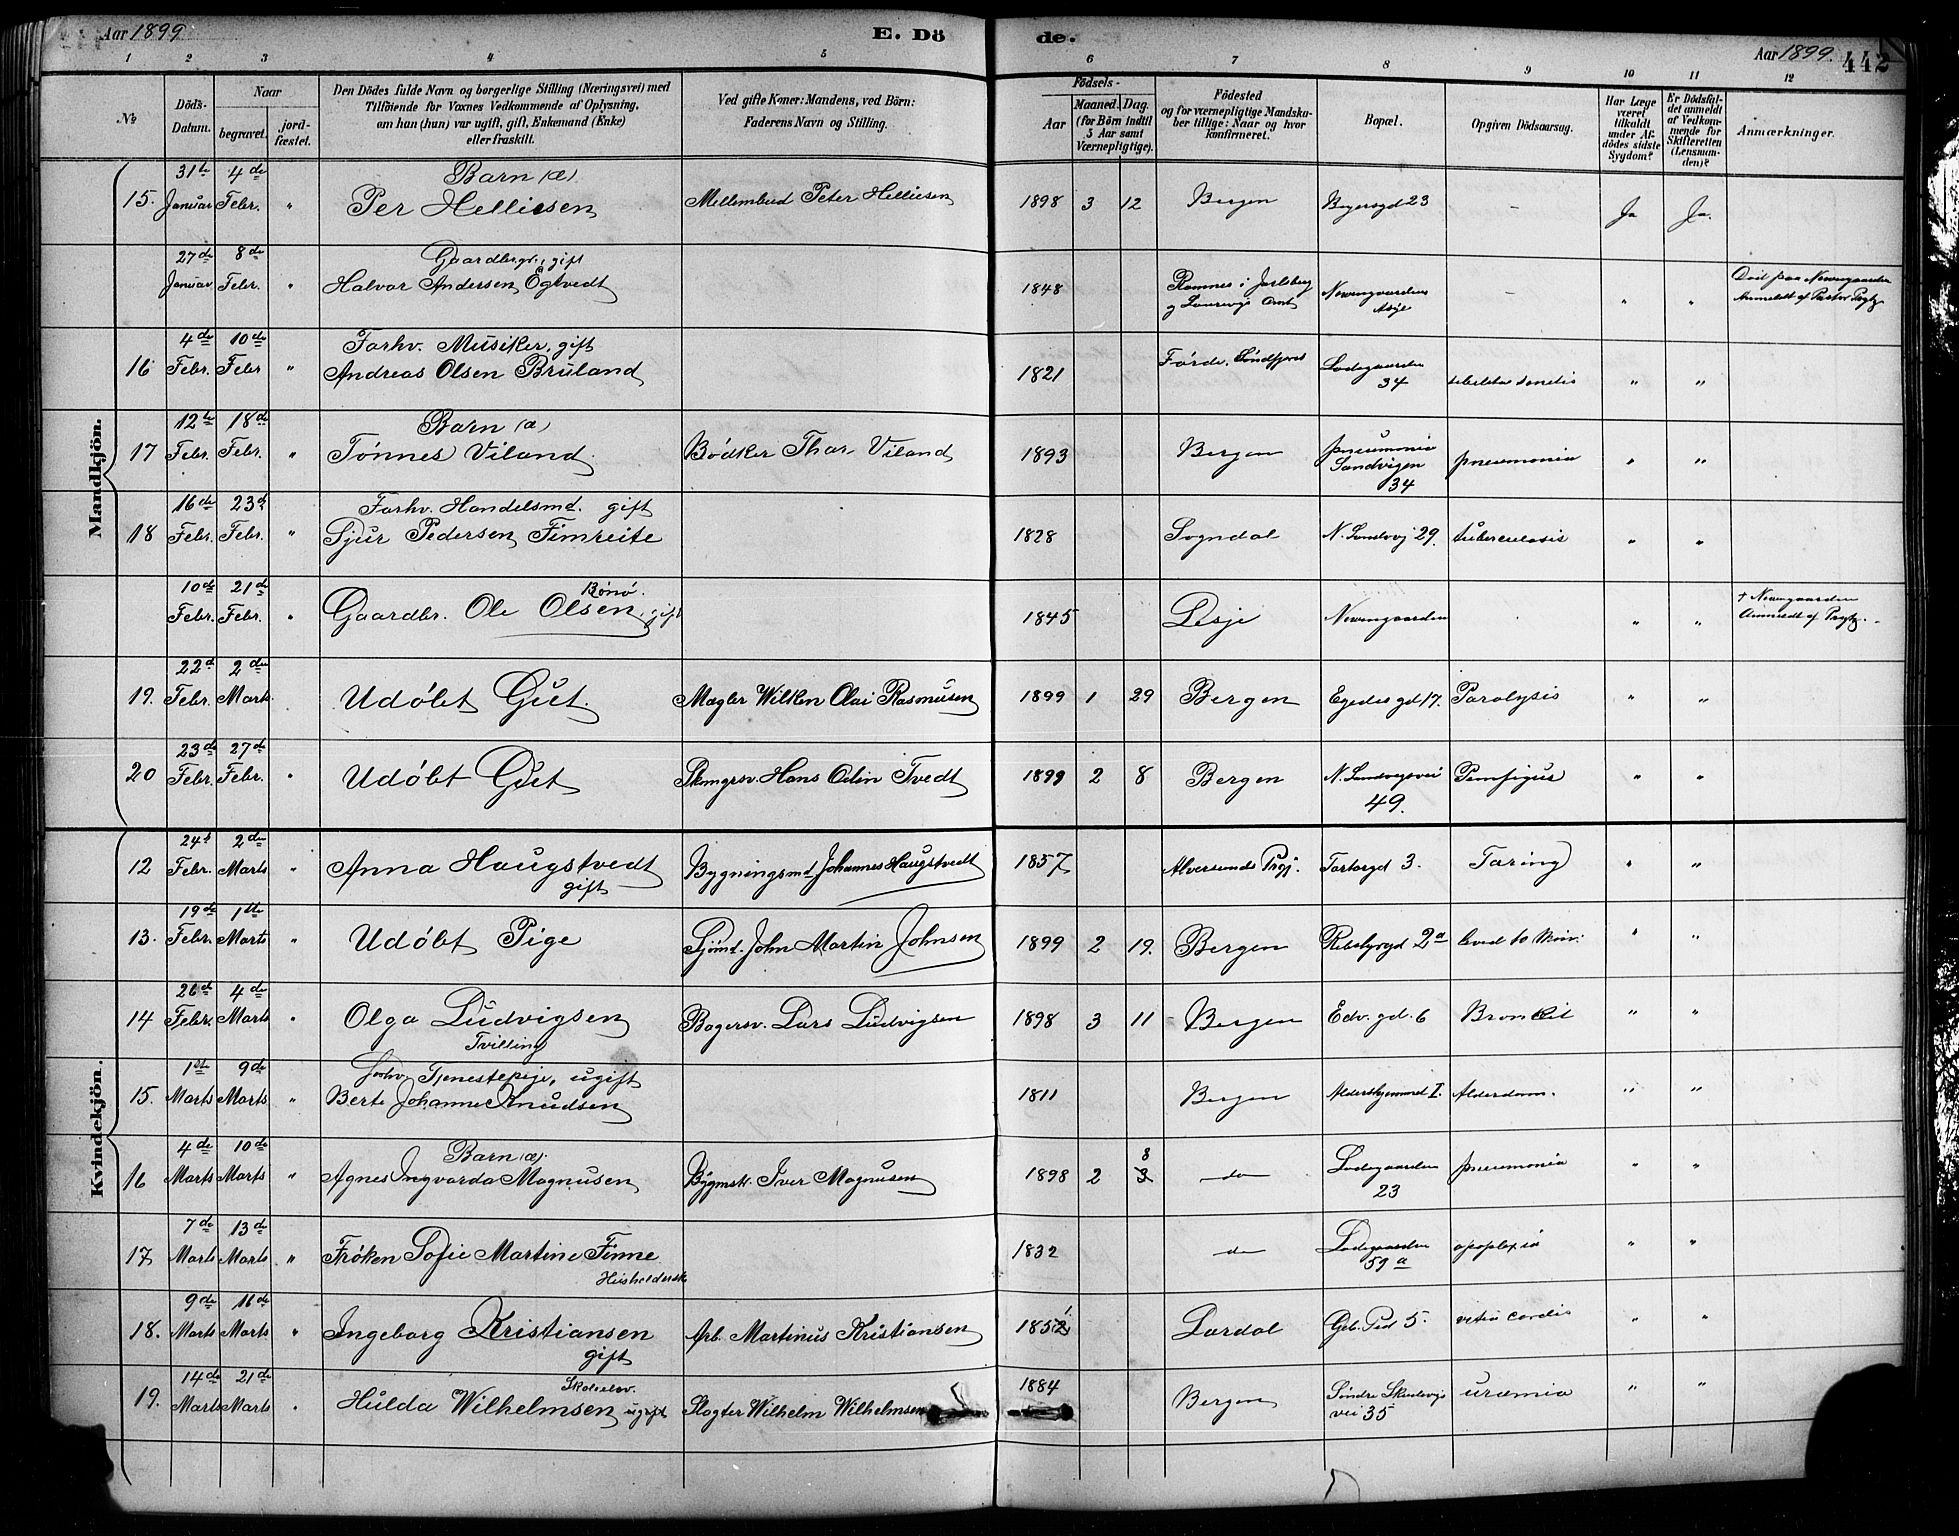 Aar 1899
E. Dö
de.
Aar 1899.
442
1 2 3 4 5 6 7 8 9 10 11 12
No
Döds-Datum.
Naar
begravet.
jord-fæstet.
Den Dödes fulde Navn og borgerlige Stilling (Næringsvei) med
Tilföiende for Voxnes Vedkommende af Oplysning,
om han (hun) var ugift, gift, Enkemand (Enke)
eller fraskilt.
Ved gifte Koner: Mandens, ved Börn:
Faderens Navn og Stilling.
Födsels-
Aar
Maaned. Dag.
(for Börn indtil
5 Aar samt
Værnepligtige).
Födested
og for værnepligtige Mandska-
ber tillige: Naar og hvor
konfirmeret.
Bopæl.
Opgiven Dödsaarsag.
Har Læge
været
tilkaldt
under Af-
dödes sidste
Sygdom?
Er Dödsfal-
det anmeldt
af Vedkom-
mende for
Skifteretten
(Lensman-
den)?
Anmærkninger.
Mandkjön.
31te 4de Barn (æ)
15. Januar Febr. " Per Helliesen Mellembud Peter Helliesen 1898 3 12 Bergen 23 - Ja Ja.
27de 8de Gaardbrgr., gift
Januar Febr. " Halvor Andersen Ögtvedt 1848 Ramnes i Jarlsberg Nevengaarden - " " Död paa Nevengaarden
og Laurvigs Amt Asyl Anmeldt af Pastor
4de 10de Forhv. Musiker, gift
16 Febr. Febr " Andreas Olsen Bruland 1821 Førde, Søndfjord Ladegaarden " "
34
12te 18de Barn (æ)
17 Febr. Febr. " Tönnes Viland Bødker Thor Viland 1893 Bergen pneumonia pneumonia " "
Sandvigen
34
16de 23d Forhv. Handelsmd. gift
18 Febr. Febr. " Sjur Pedersen Fimreite 1828 Sogndal N. Sandvvj 29. tuberculosis " "
10de 21de Bönö.
Febr. Febr. " Gaardbr. Ole Olsen, gift 1845 Lesje Nevengaarden " " † Nevengaarden
Anmeldt af
22d 2den
19. Febr. Marts Udøbt Gut. Mægler Wilken Olai Rasmusen 1899 1 29 Bergen Egedes gd 17. Paralysis " "
23de 27de
20 Febr. Febr. " Udøbt Gut Hans Odin Tvedt 1899 2 8 Bergen N. Sandvigsvei Pemfigus " "
49.
Kvindekjön.
24d 2den
12 Febr. Marts " Anna Haugstvedt Bygningsmd Johannes Haugstvedt 1857 Alversunds Prgj. Tartargd 3. Tæring " "
gift
19de 1ste
13. Febr. Marts Udøbt Pige Sjömd. John Martin Johnsen 1899 2 19. Bergen 2a leved 10 Min: " "
26de 4de
14 Febr. Marts " Olga Ludvigsen Bagersv. Lars Ludvigsen 1898 3 11 Bergen Edv. gd. 6 Bronkit " "
Tvilling
1ste 9de Forhv Tjenestepige, ugift
15. Marts Marts " Berte Johanne Knudsen 1811 Bergen Alderdom. " "
4de 10de Barn (æ).
16 Marts Marts " Agnes Ingvarda Magnusen Bygmstr. Iver Magnusen 1898 2 3 8 do Ladegaarden pneumonia " "
23
7de 13de
17 Marts Marts " Frøken Sofie Martine Finne 1832 do Ladegaarden apoplexia " "
Husholdersk 59a
9de 16de
18. Marts Marts " Ingeborg Kristiansen Arb. Martinus Kristiansen 1852 1 Lærdal Geb. Pad 5. vitiu cordis " "
gift
14de 21de Skoleelev.
19. Marts Marts " Hulda Wilhelmsen ugift Slagter Wilhelm Wilhelmsen 1884 Bergen Søndre Skudevigs uræmia " "
vei 35